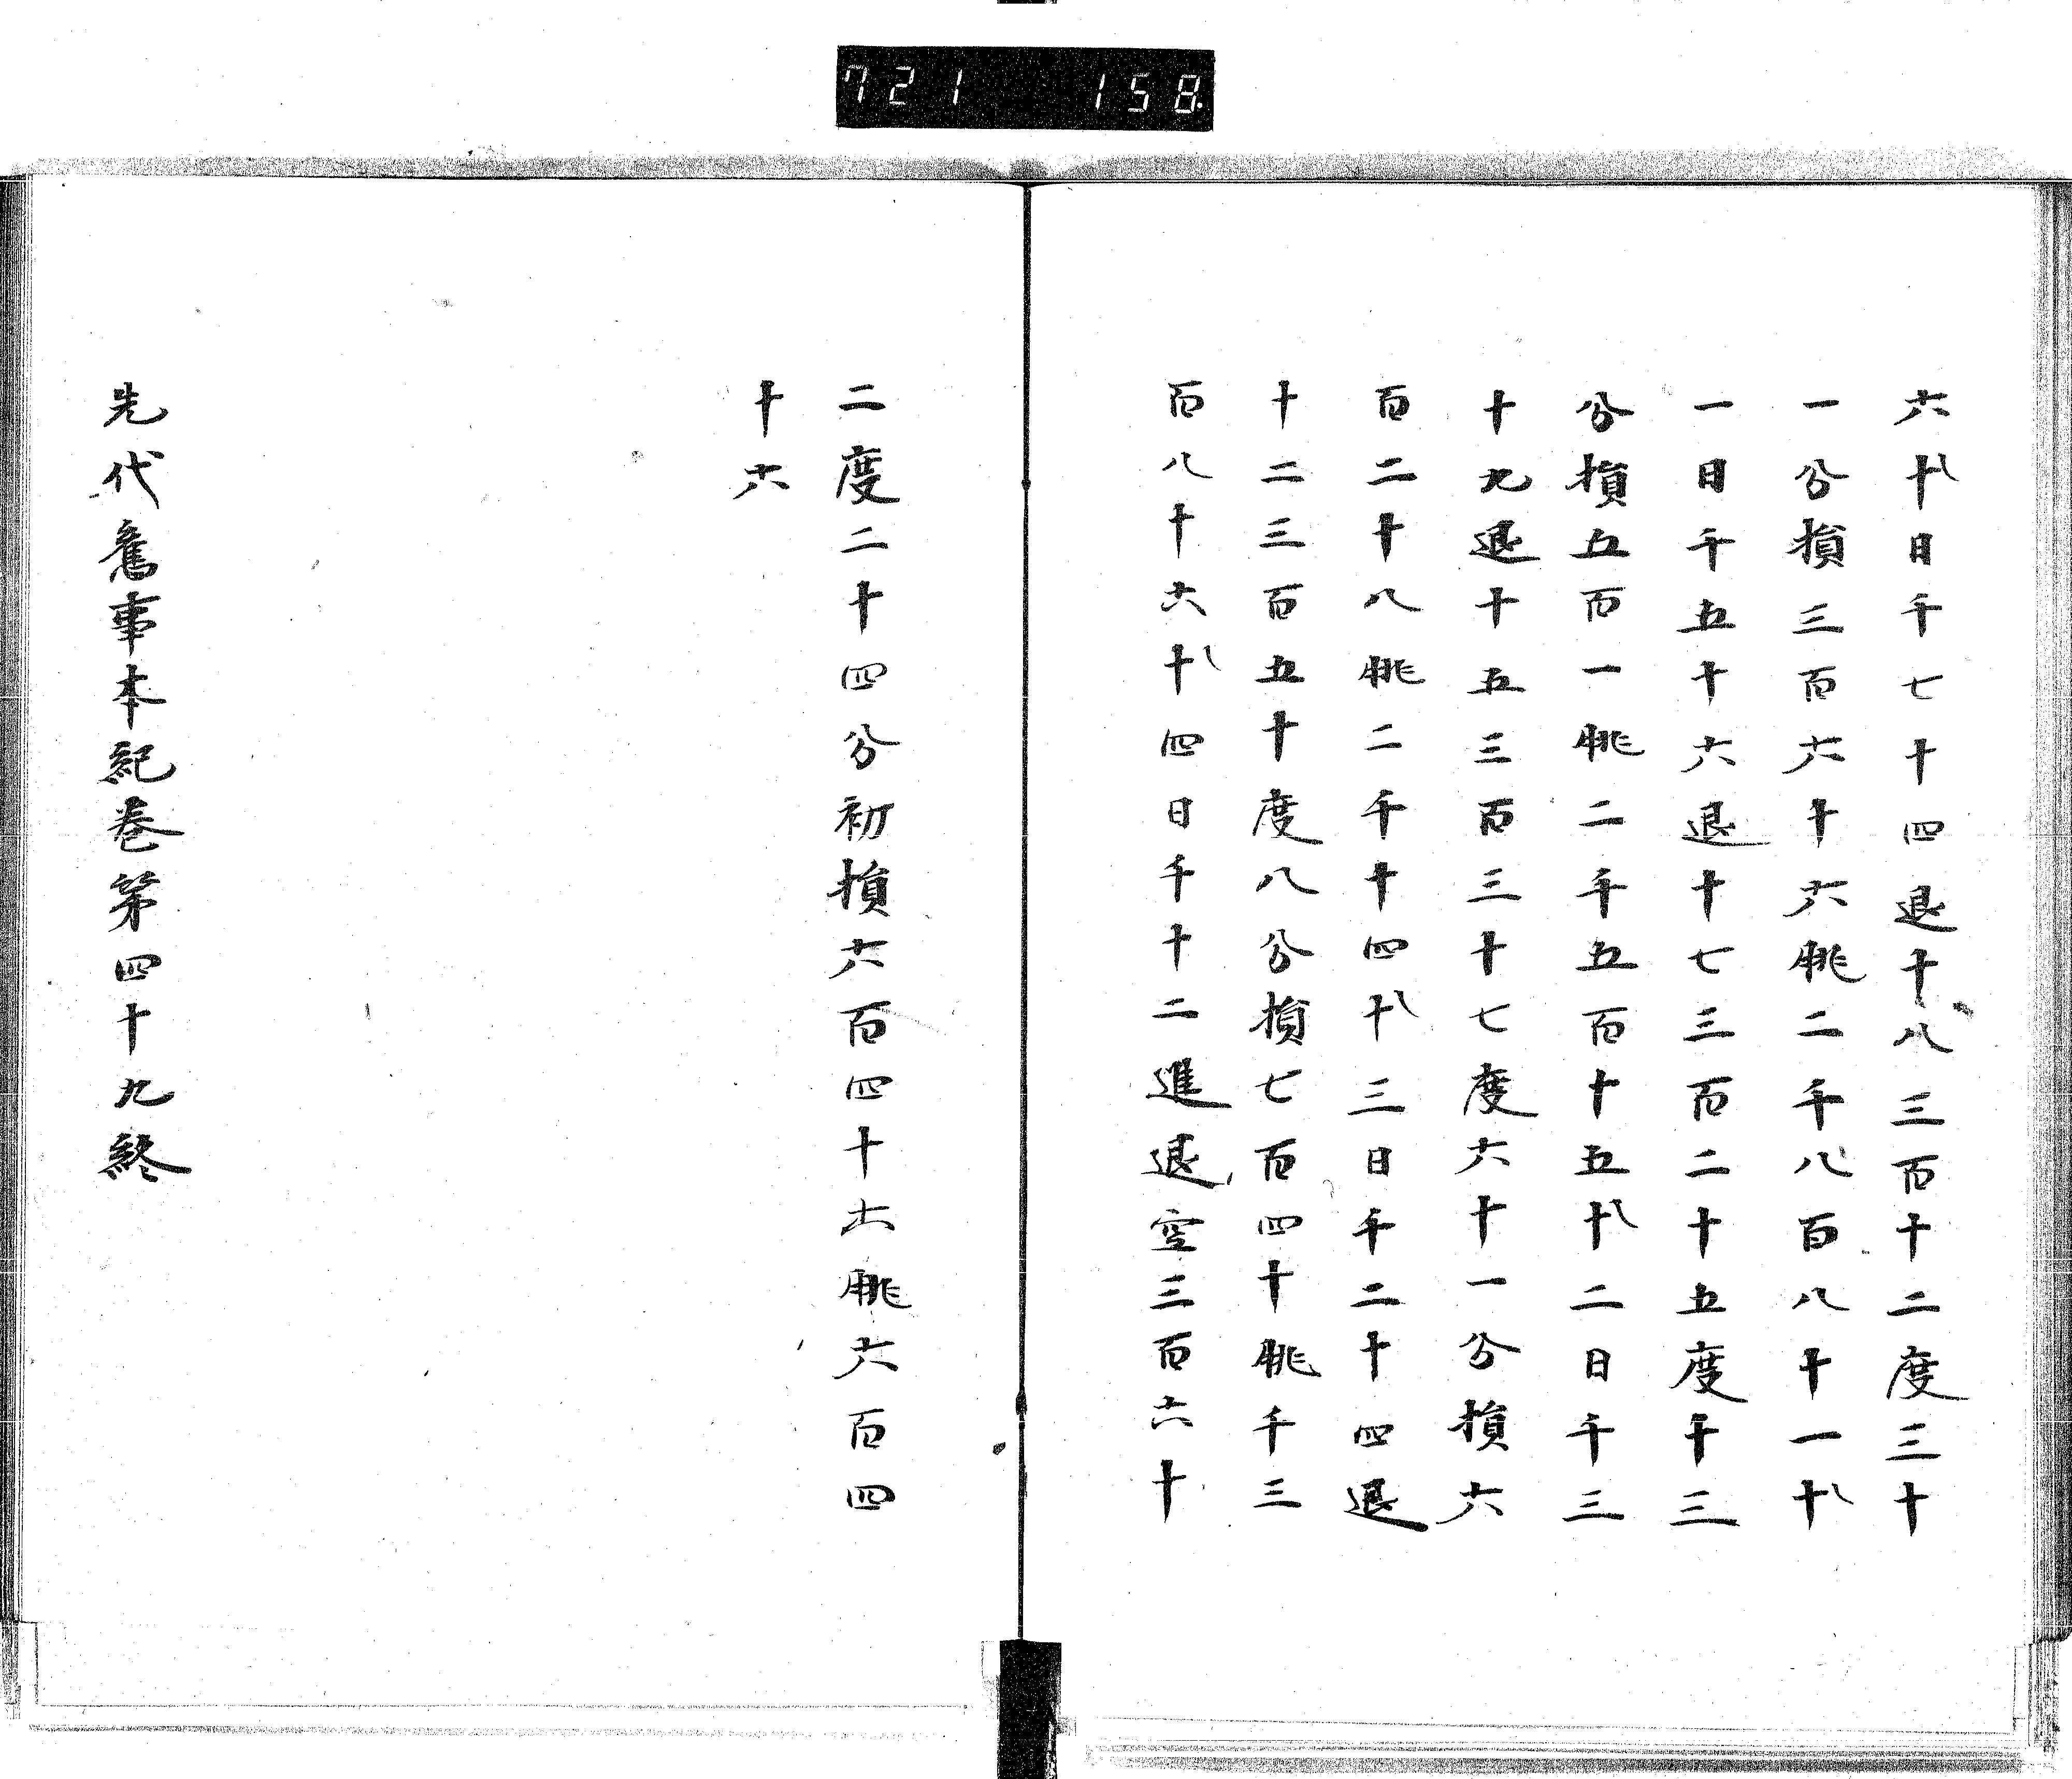 721 158
六十八日千七十四退十八三百十二度三十
一分損三百六十六朓二千八百八十一十八
一日千五十六退十七三百二十五度十三
分損五百一朓二千五百十五十八二日千三
十九退十五三百三十七度六十一分損六
百二十八朓二千十四十八三日千二十四退
十二三百五十度八分損七百四十朓千三
百八十六十八四日千十二進退空三百六十
二度二十四分初損六百四十六朓六百四
十六
先代舊事本紀卷第四十九終